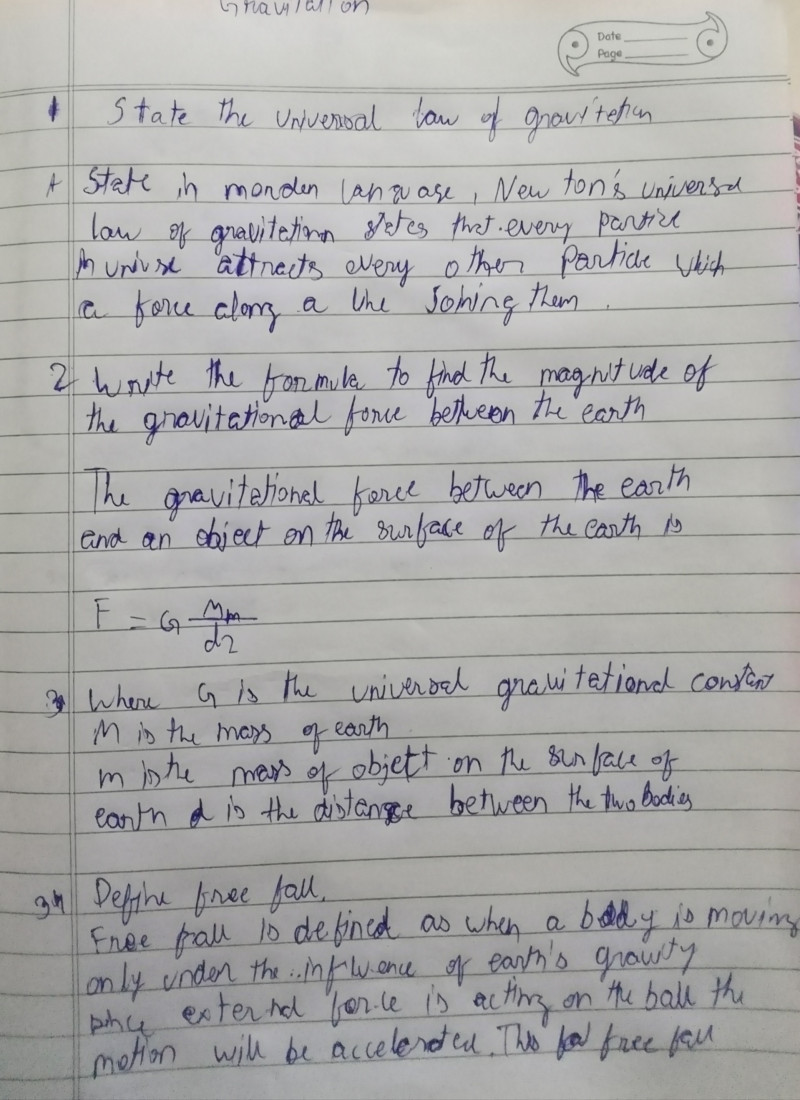 Gravitation
Date
Page
1 State the universal law of gravitation
A State in morden language, New ton's universal
law of gravitation states that every partice
in univise attracts every other Particle which
a force along a line Johing them.
2 Write the formula to find the magnitude of
the gravitational force between the earth
The gravitational force between the earth
and an object on the surface of the earth is
F = G Mm/d2
3 Where G is the universal gravitational constant
M is the mass of earth
m is the mass of object on the surface of
earth d is the distance between the two bodies
3 Define free fall.
Free fall is defined as when a body is moving
only under the influence of earth's gravity
since external force is acting on the ball the
motion will be accelerated. This free fall